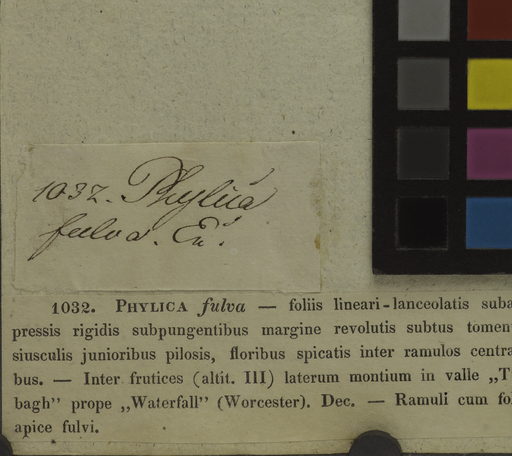 1032. Phylica
fulva. E. Z.
1032. PHYLICA fulva — foliis lineari-lanceolatis suba
pressis rigidis subpungentibus margine revolutis subtus tomen
siusculis junioribus pilosis, floribus spicatis inter ramulos centra
bus. — Inter frutices (altit. III) laterum montium in valle „T
bagh” prope „Waterfall” (Worcester). Dec. — Ramuli cum fo
apice fulvi.